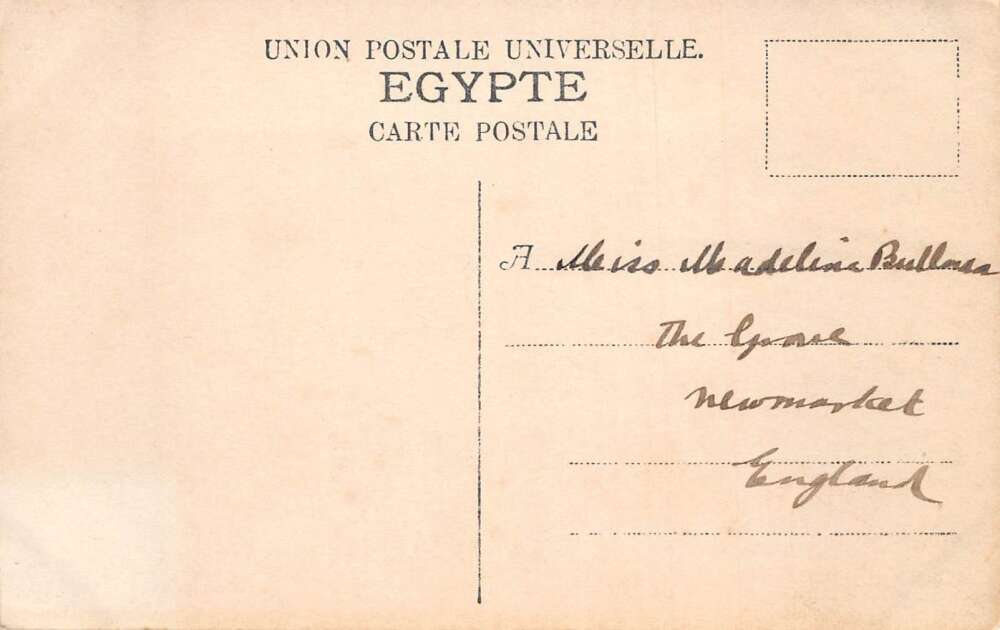 UNION POSTALE UNIVERSELLE.
EGYPTE
CARTE POSTALE
A Miss Madeline
The Grove
Newmarket
England